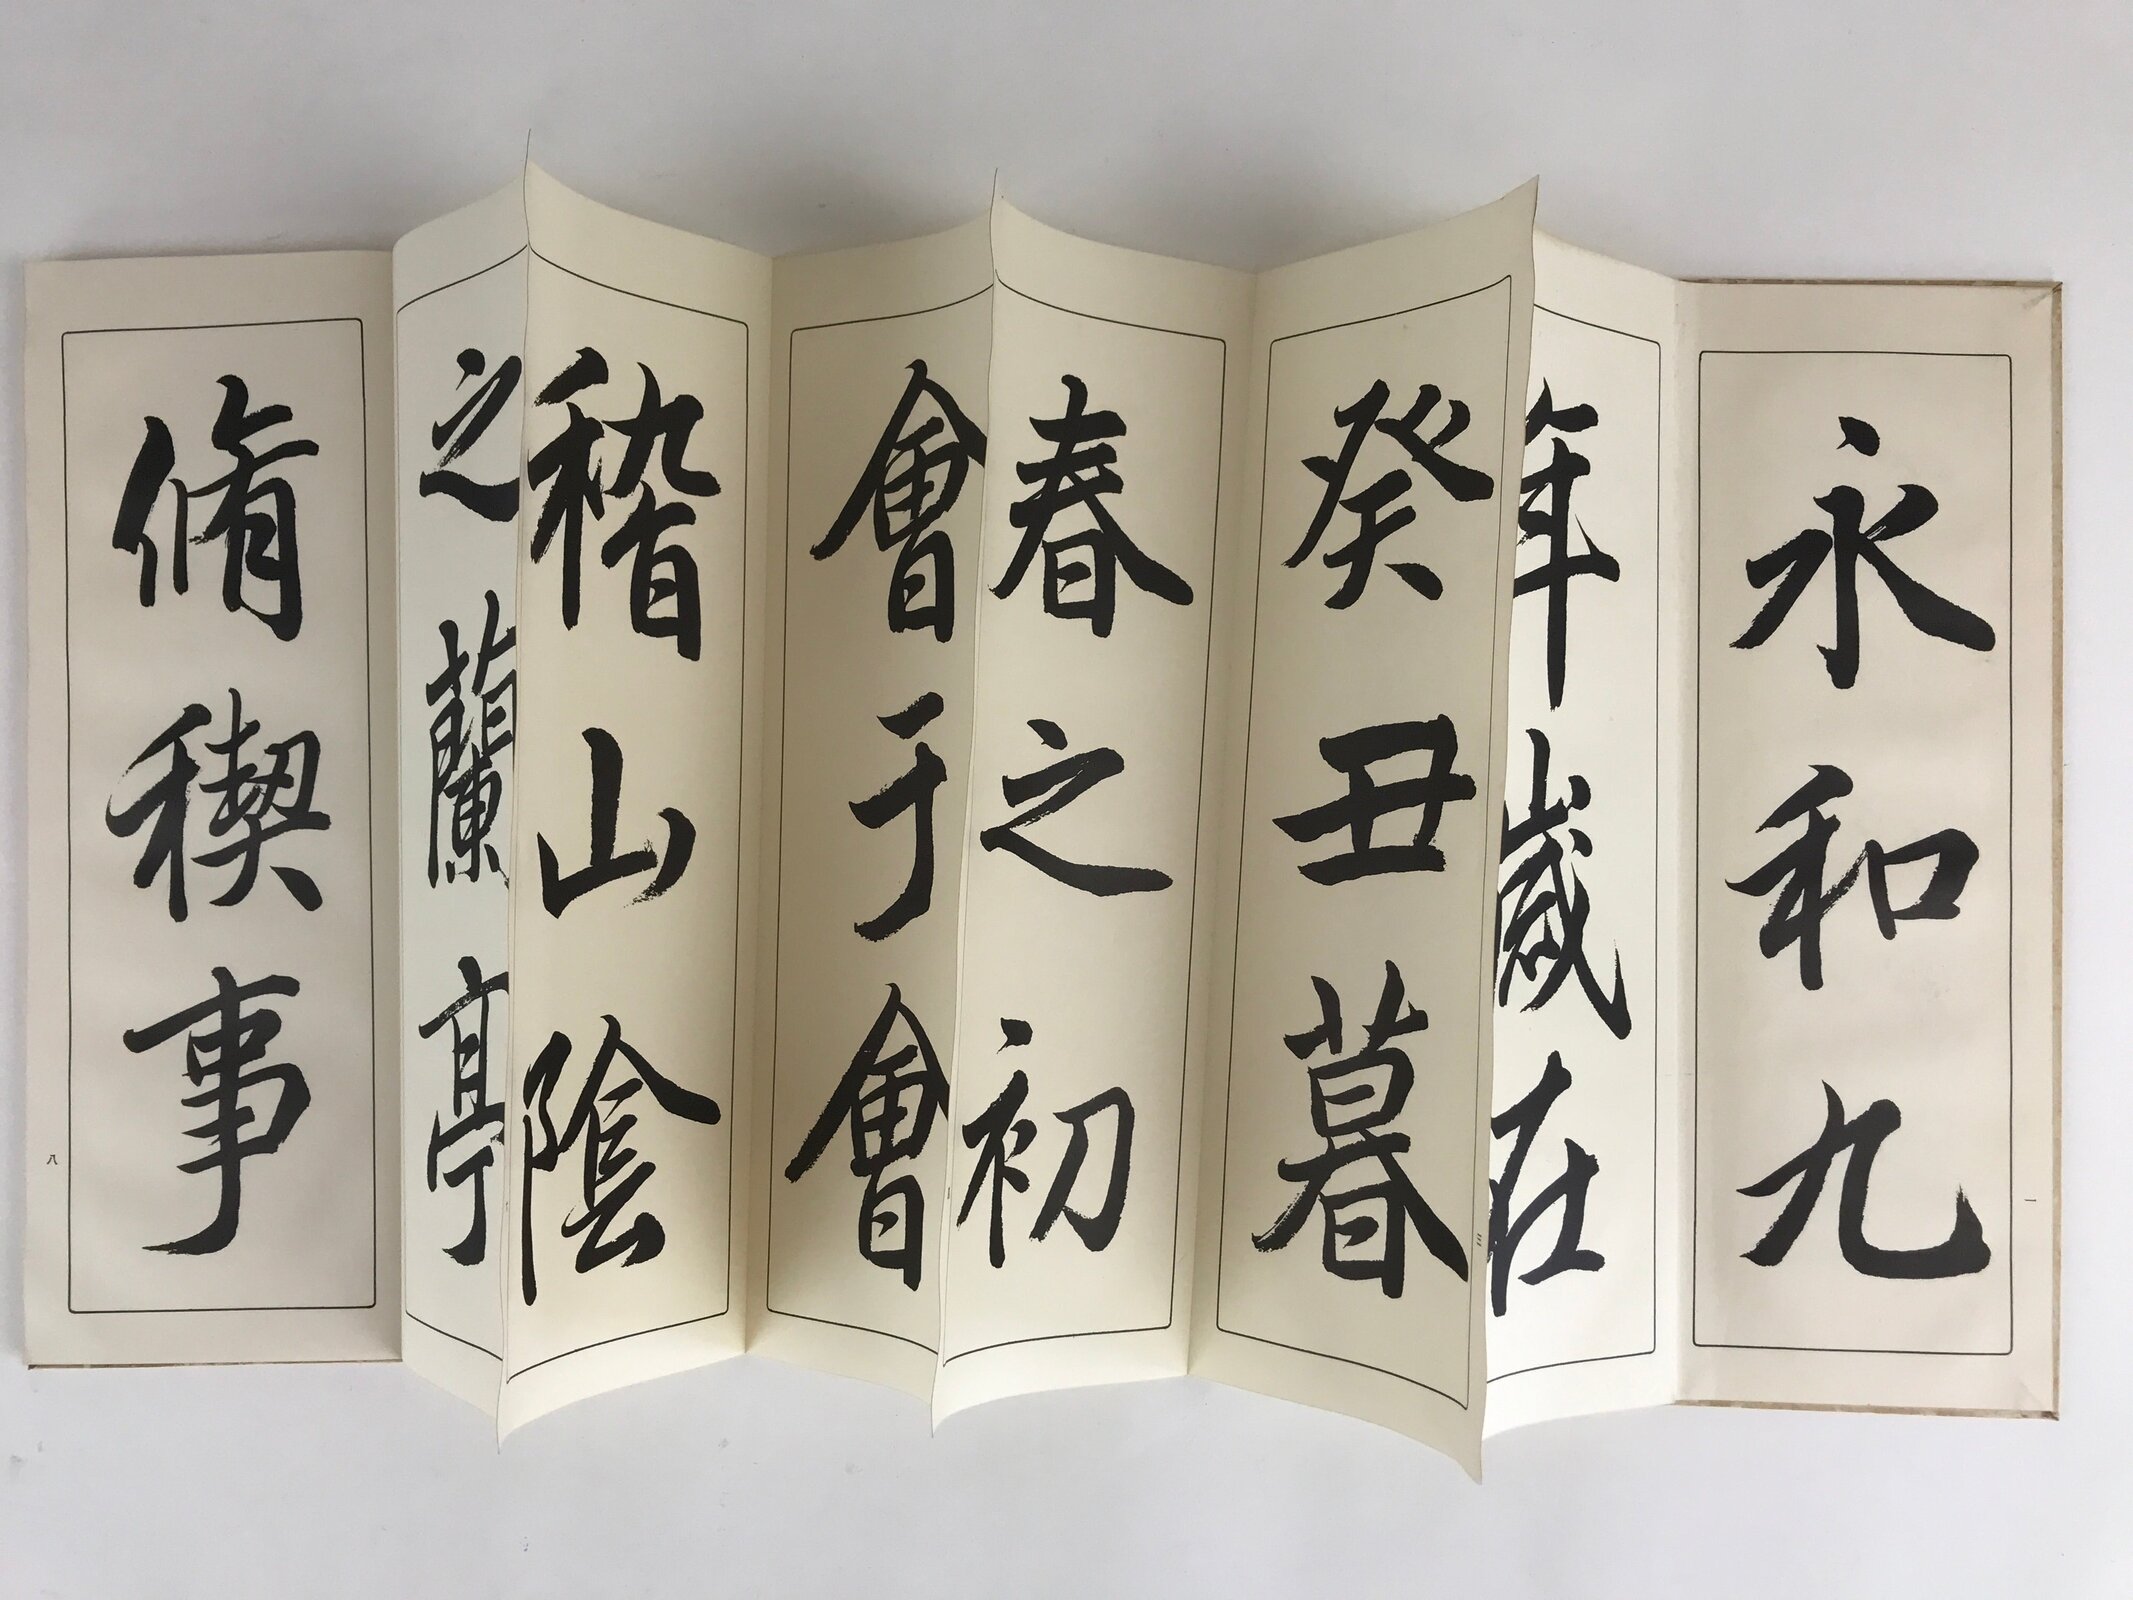 永和九
一
年歲在
癸丑暮
三
春之初
會于會
稽山陰
之蘭亭
脩稧事
八